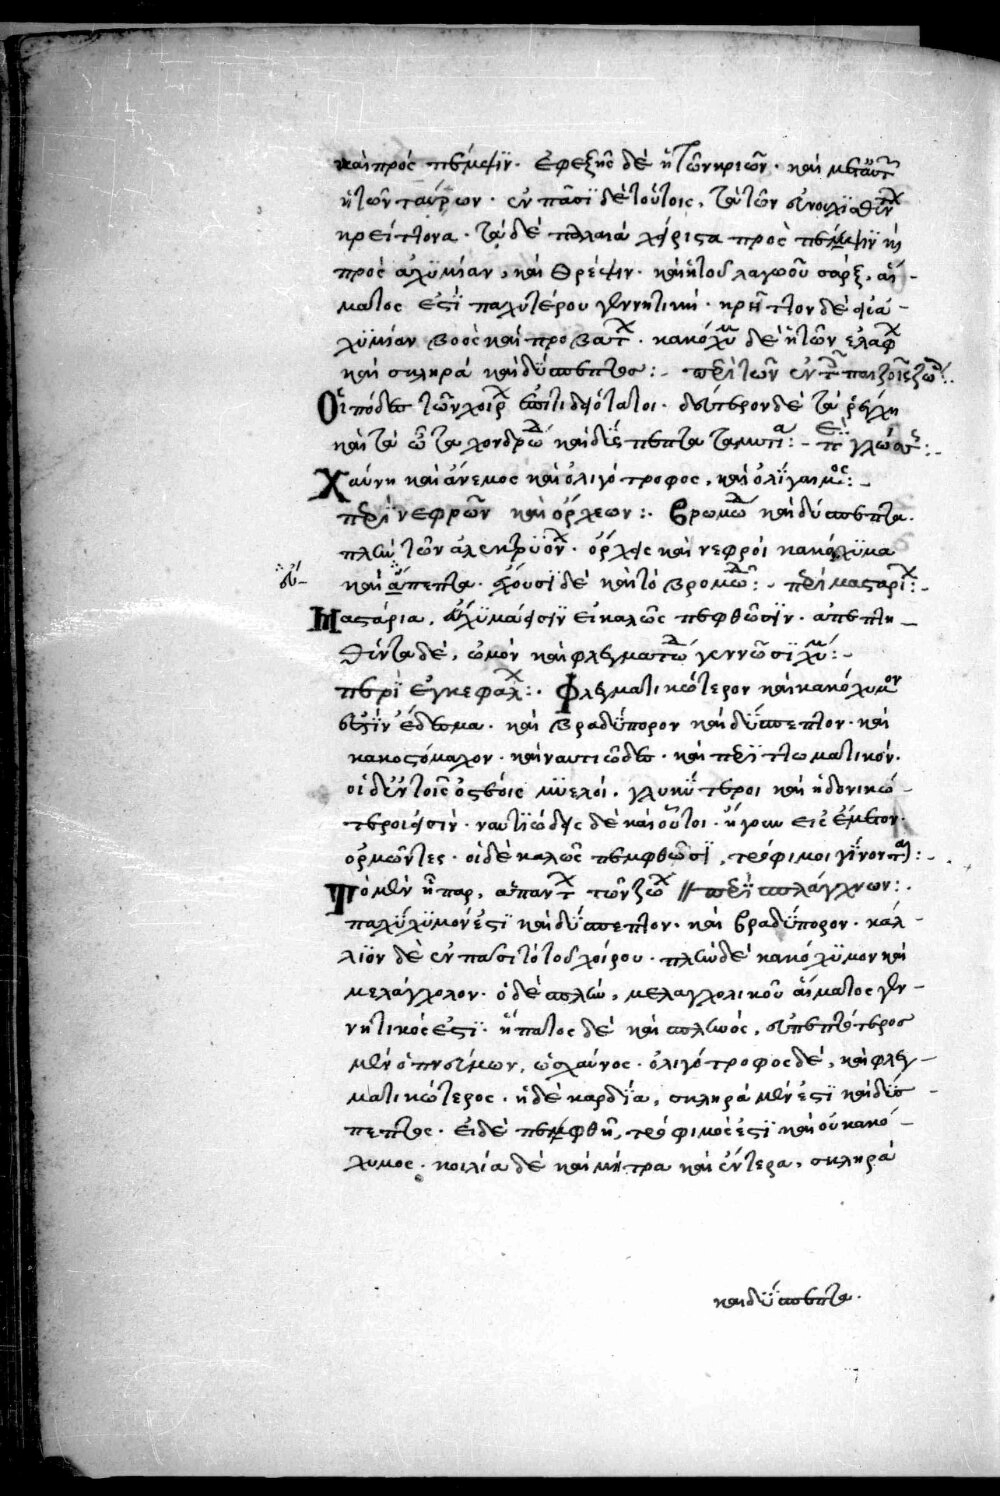 καὶ πρὸς πέμψϊν· ἐφεξῆς δὲ ἡ τῶν κριῶν· καὶ μετ αὐτ
ἡ τῶν ταύρων· ἐν πᾶσϊ δὲ τούτοις, τὰ τῶν εὐνουχϊσθέντ
κρείττονα· τὰ δὲ παλαιὰ χείριστα πρὸς πέμψϊν κὶ
πρὸς εὐχϋμίαν, καὶ θρέψιν· καὶ ἡ τοῦ λαγωοῦ σάρξ, αἵ-
ματος ἐστϊ παχϋτέρου γεννητική· κρεῖττον δὲ εἰς εὐ-
χϋμίαν βοὸς καὶ προβάτ· κακόχϋμ δὲ ἡ τῶν ἐλάφ
καὶ σκληρὰ καὶ δύσπεπτος:- περὶ τῶν ἐν τ πεζοῖς ζώ:
Οἱ πόδες τῶν χοίρ ἐπιτιδειότατοι· δεύτερον δὲ τὰ ῥύγχη
καὶ τὰ ὦτα χονδρώδ καὶ δύσπεπτα :- πε γλώσσ:-
Χαύνη καὶ ἄνεμος καὶ ὀλιγότροφος, καὶ ὀλίγαιμος:-
περὶ νεφρῶν καὶ ὄρχεων:· βρωμώδ καὶ δύσπεπτα·
πλὴν τῶν ἀλεκτρυόν· ὄρχεις καὶ νεφροὶ κακόχϋμα
καὶ ἄπεπτα· ἔχουσϊ δὲ καὶ τὸ βρομῶδ:- περὶ μασταρί:-
Μαστάρια, εὔχϋμα εἰσϊν εἰ καλῶς πεφθῶσϊν· ἀπεπτη-
θέντα δὲ, ὠμὸν καὶ φλεγματώδ γεννῶσϊ χϋμ:-
περὶ ἐγκεφάλ:· Φλεγματικώτερον καὶ κακόχυμον
ἐστϊν ἔδεσμα· καὶ βραδϋπορον καὶ δϋσπεπτον· καὶ
κακοστόμαχον· καὶ ναυτιῶδες· καὶ περϊττωματικόν·
οἱ δ' ἐν τοῖς ὀστέοις μϋελοὶ, γλυκϋτεροι καὶ ἡδονικώ-
τεροι εἰσὶν· ναυτϊώδεις δὲ καὶ οὗτοι· ἤγουν εἰς ἔμετον
ὁρμῶντες· οἱ δὲ καλῶς πεμφθῶσϊ, τρόφιμοι γϊνονται:-
Τὸ μὲν ἧπαρ, ἁπάντ τῶν ζώ // περϊ σπλάγχνων:·
παχϋχϋμόν ἐστϊ καὶ δϋσπεπτον· καὶ βραδϋπορον· κάλ-
λϊον δὲ ἐν πᾶσι τὸ τοῦ χοίρου· πλὴν δὲ κακόχϋμον καὶ
μελάγχολον· ὁ δὲ σπλὴν, μελαγχολικοῦ αἵματος γεν-
νητικός ἐστϊ· ἥπατος δὲ καὶ σπληνὸς, εὐπεπτότερος
μὲν ὁ πνεύμων, ὡς χαύνος· ὀλιγότροφος δὲ, καὶ φλεγ-
ματικώτερος· ἡ δὲ καρδΐα, σκληρὰ μέν ἐστϊ καὶ δύσ-
πεπτος· εἰ δὲ πεμφθῇ, τρόφιμός ἐστϊ καὶ οὐ κακό-
χυμος· κοιλία δὲ καὶ μήτρα καὶ ἔντερα, σκληρὰ
καὶ δϋσπεπτα·